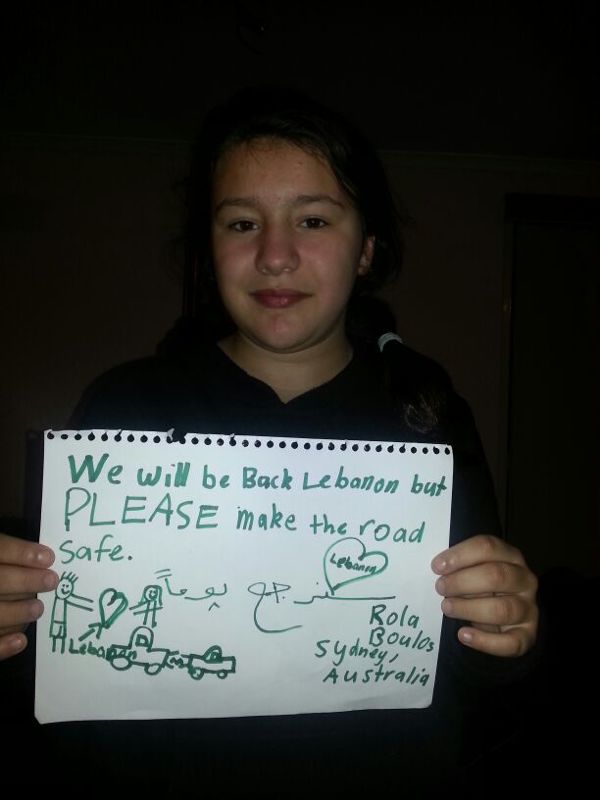 We will be Back Lebanon but
PLEASE make the road
safe.
Lebanon
سنرجع يوماً
Rola
Boulos
Sydney,
Australia
Lebanon